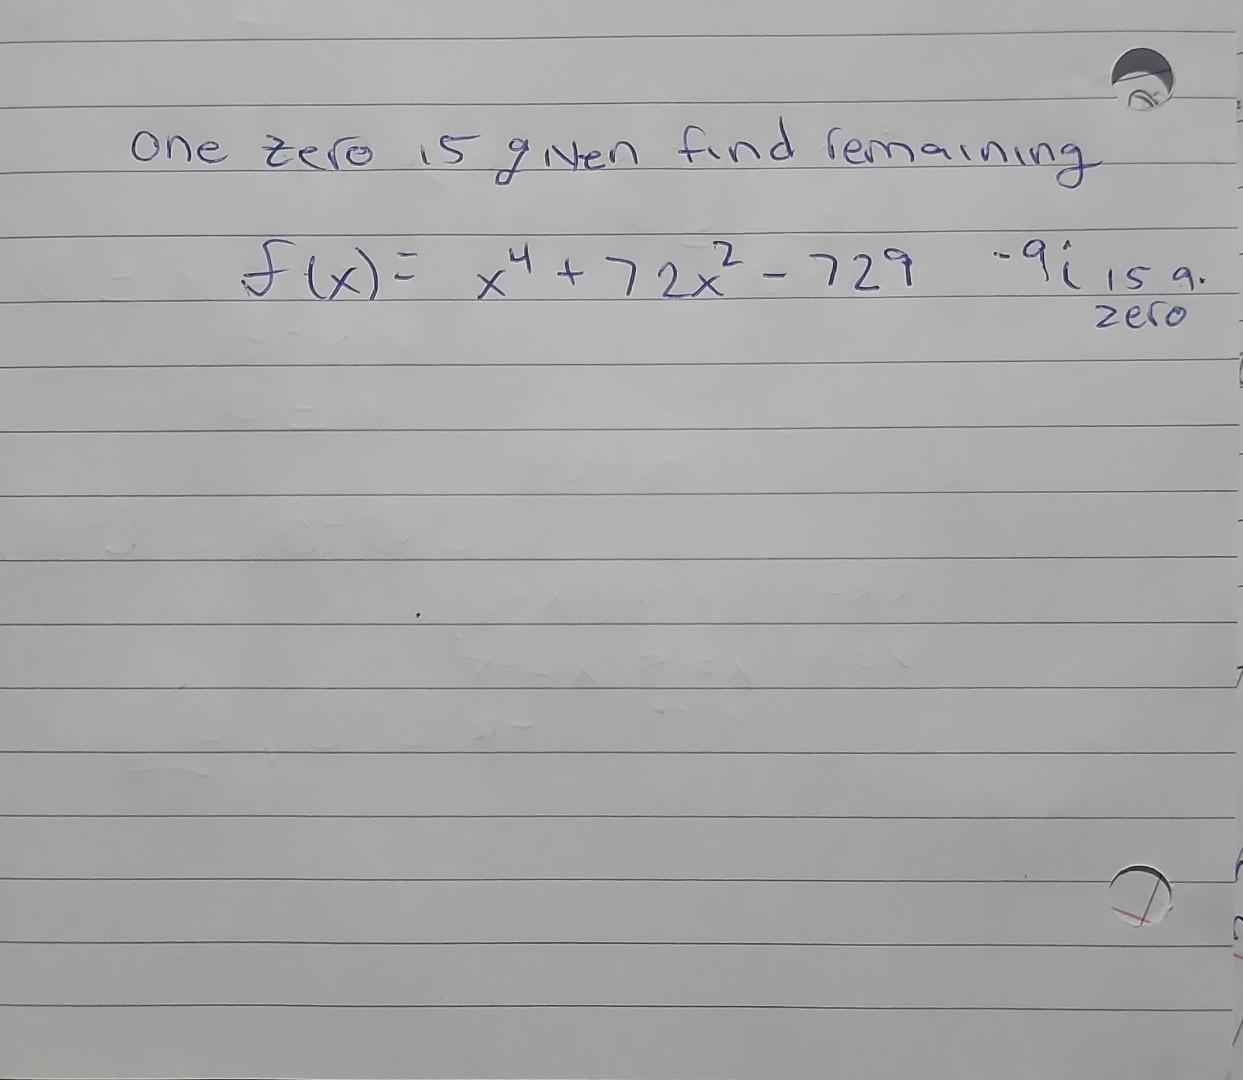 One zero is given find remaining
f(x) = x⁴ + 72x² - 729 -9i is a.
zero